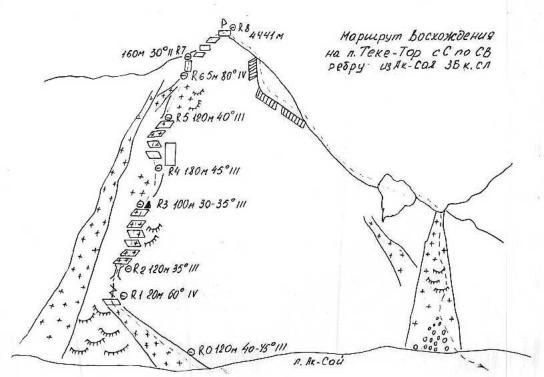 Маршрут Восхождения
на п. Теке-Тор с С по СВ
ребру из Ак-Сай 3Б к.сл
R8
4441м
160м 30° II R7
R6 5м 80° IV
R5 120м 40° III
R4 180м 45° III
R3 100м 30-35° III
R2 120м 35° III
R1 20м 60° IV
R0 120м 40-45° III
л. Ак-Сай